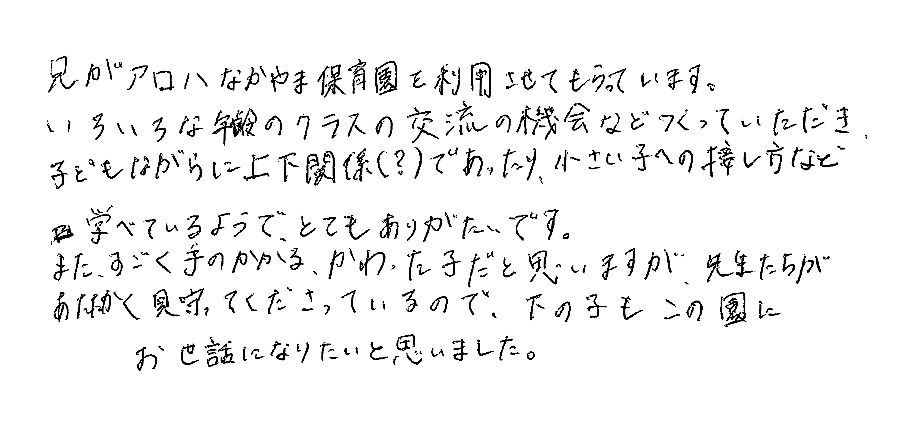 兄がアロハなかやま保育園を利用させてもらっています。
いろいろな年齢のクラスの交流の機会などつくっていただき、
子どもながらに上下関係(?)であったり、小さい子への接し方など
学べているようで、とてもありがたいです。
また、すごく手のかかる、かわった子だと思いますが、先生たちが
あたたかく見守ってくださっているので、下の子もこの園に
お世話になりたいと思いました。